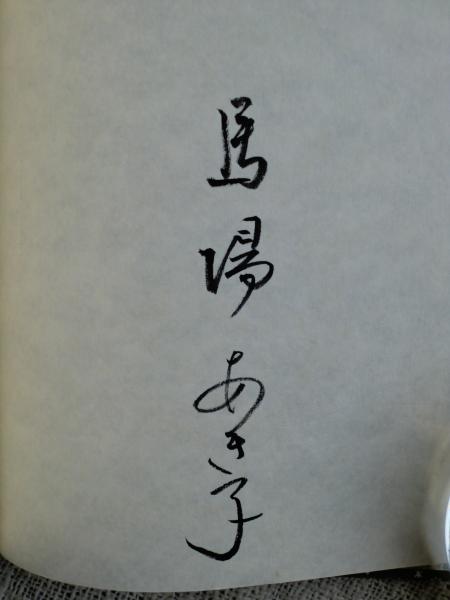 馬場あき子